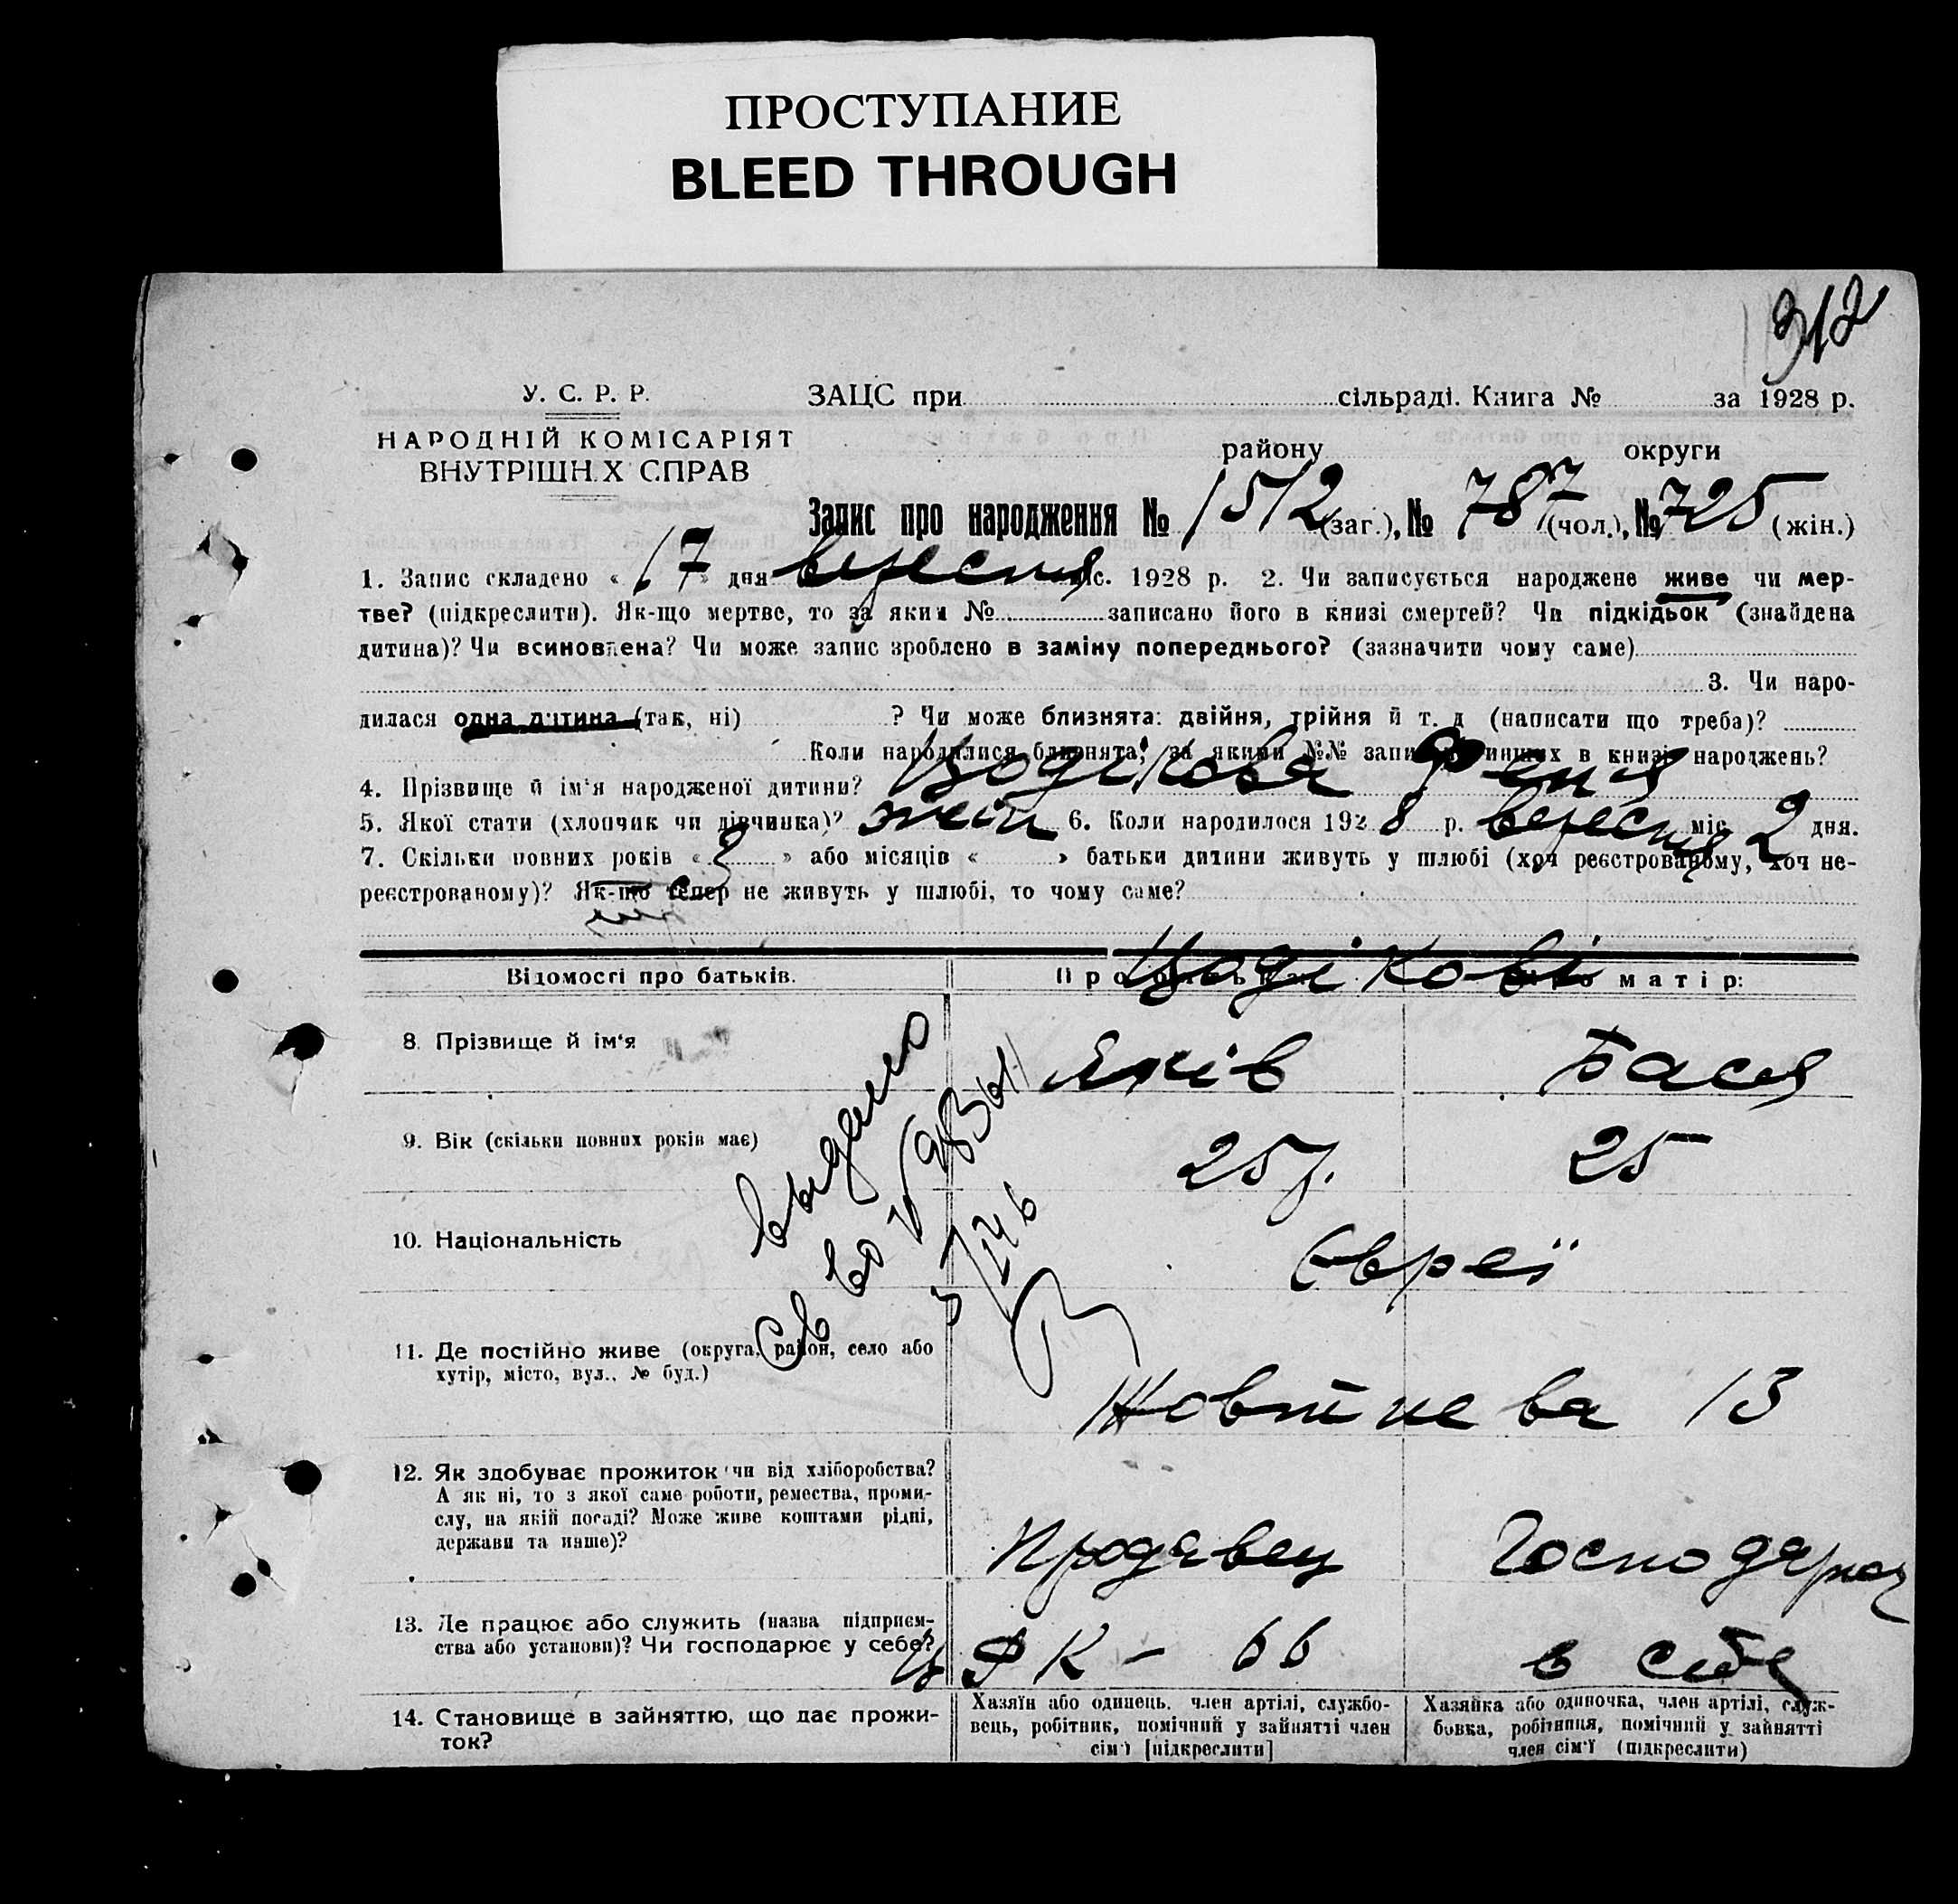 ПРОСТУПАНИЕ
BLEED THROUGH
312
У. С. Р. Р.
НАРОДНІЙ КОМІСАРІЯТ
ВНУТРІШН Х СПРАВ
ЗАЦС при сільраді. Книга № за 1928 р.
району округи
Запис про народження № 1512 (заг.), № 787 (чол.), № 725 (жін.)
1. Запис складено « 17 » дня вересня міс. 1928 р. 2. Чи записується народжене живе чи мер-
тве? (підкреслити). Як-що мертве, то за яким № записано його в книзі смертей? Чи підкідьок (знайдена
дитина)? Чи всиновлена? Чи може запис зроблено в заміну попереднього? (зазначити чому саме)
3. Чи наро-
дилася одна дитина (так, ні) ? Чи може близнята: двійня, трійня й т. д (написати що треба)?
Коли народилися близнята, за якими №№ записано инших в книзі народжень?
4. Прізвище й ім'я народженої дитини? Феня
5. Якої стати (хлопчик чи дівчинка)? жін 6. Коли народилося 192 8 р. вересня міс 2 дня.
7. Скільки повних років « 3 » або місяців « » батьки дитини живуть у шлюбі (хоч реєстрованому, хоч не-
реєстрованому)? Як-що тепер не живуть у шлюбі, то чому саме?
Відомості про батьків. Про батька: Про матір:
8. Прізвище й ім'я Яків Бася
9. Вік (скільки повних років має) 25 р. 25
10. Національність Євреї
11. Де постійно живе (округа, район, село або
хутір, місто, вул., № буд.)
Жовтнева 13
12. Як здобуває прожиток чи від хліборобства?
А як ні, то з якої саме роботи, ремества, проми-
слу, на якій посаді? Може живе коштами рідні,
держави та инше)?
Продавец Господарка
13. Де працює або служить (назва підприєм-
ства або установи)? Чи господарює у себе?
ЦФК - 66 в себе
14. Становище в зайняттю, що дає прожи-
ток?
Хазяїн або одинець, член артілі, службо-
вець, робітник, помічний у зайнятті член
сім'ї [підкреслити]
Хазяйка або одиночка, член артілі, служ-
бовка, робітниця, помічний у зайнятті
член сім'ї (підкреслити)
выдано
св во